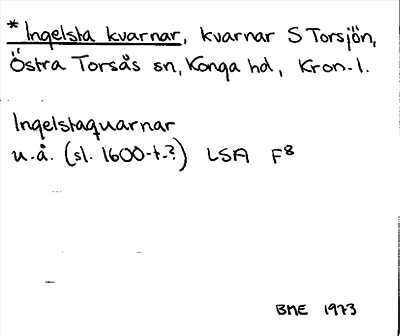 * Ingelsta kvarnar, kvarnar S Torsjön,
Östra Torsås sn, Konga hd, Kron. l.
Ingelstaquarnar
u.å. (sl. 1600-t.?) LSA F8
BME 1973